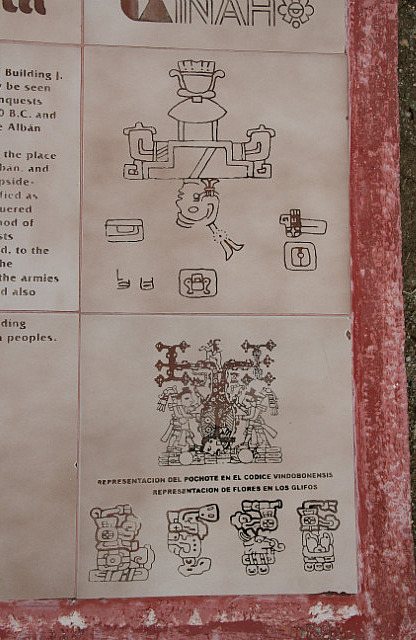 INAH
Building J.
be seen
nquests
B.C. and
Albán
the place
ban, and
pside-
fied as
uered
od of
sts
d, to the
he
the armies
d also
ding
peoples.
REPRESENTACION DEL POCHOTE EN EL CODICE VINDOBONENSIS
REPRESENTACION DE FLORES EN LOS GLIFOS